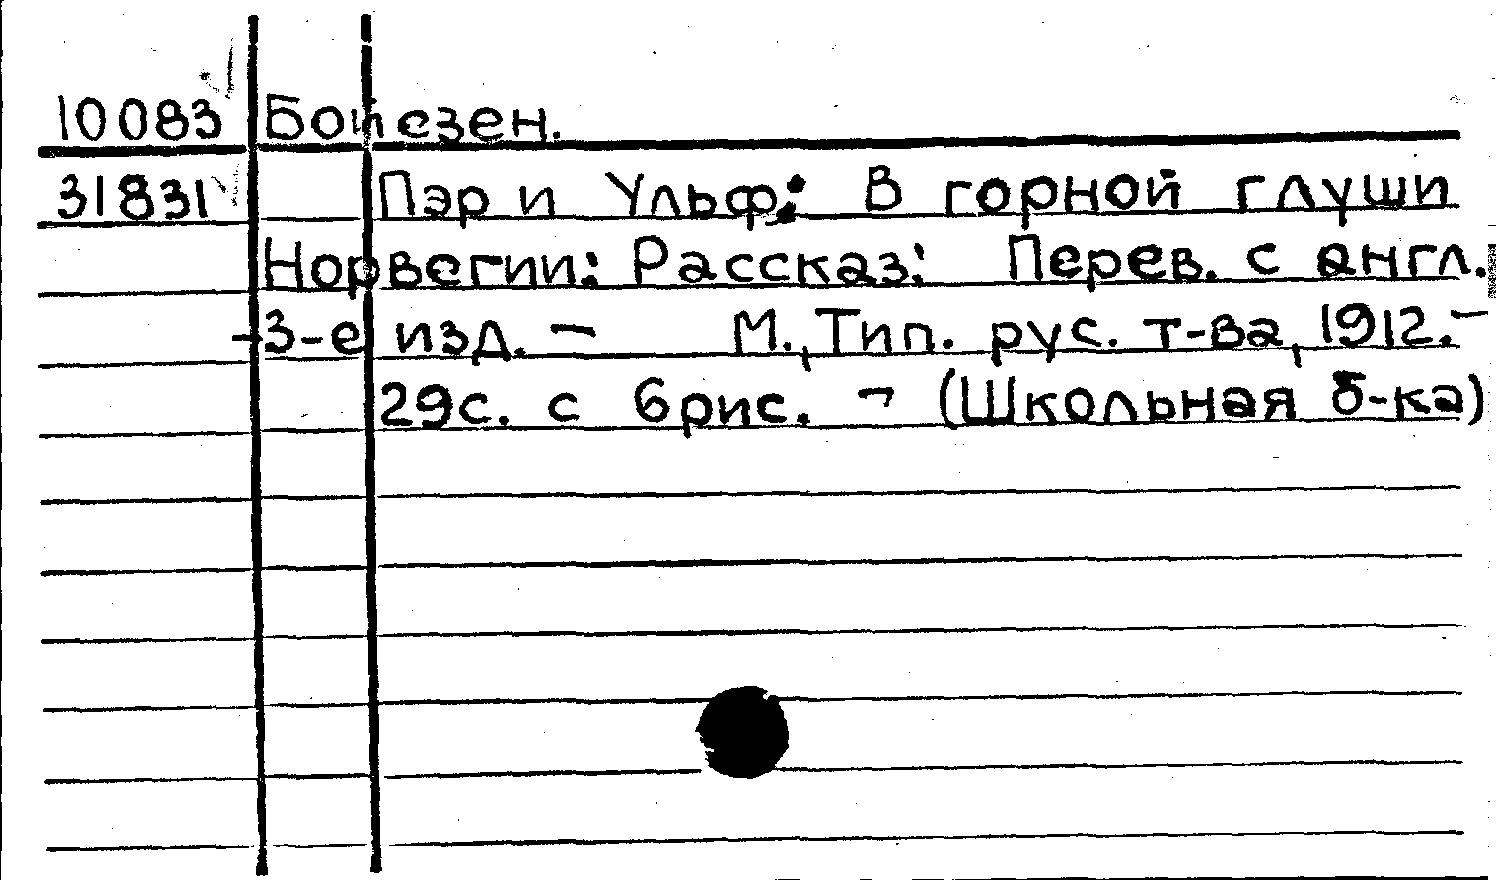 10083 Бойезен.
31831 Пэр и Ульф: В горной глуши
Норвегии: Рассказ: Перев. с англ.
-3-е изд. — М., Тип. рус. т-ва, 1912. —
29с. с 6рис. - (Школьная б-ка)